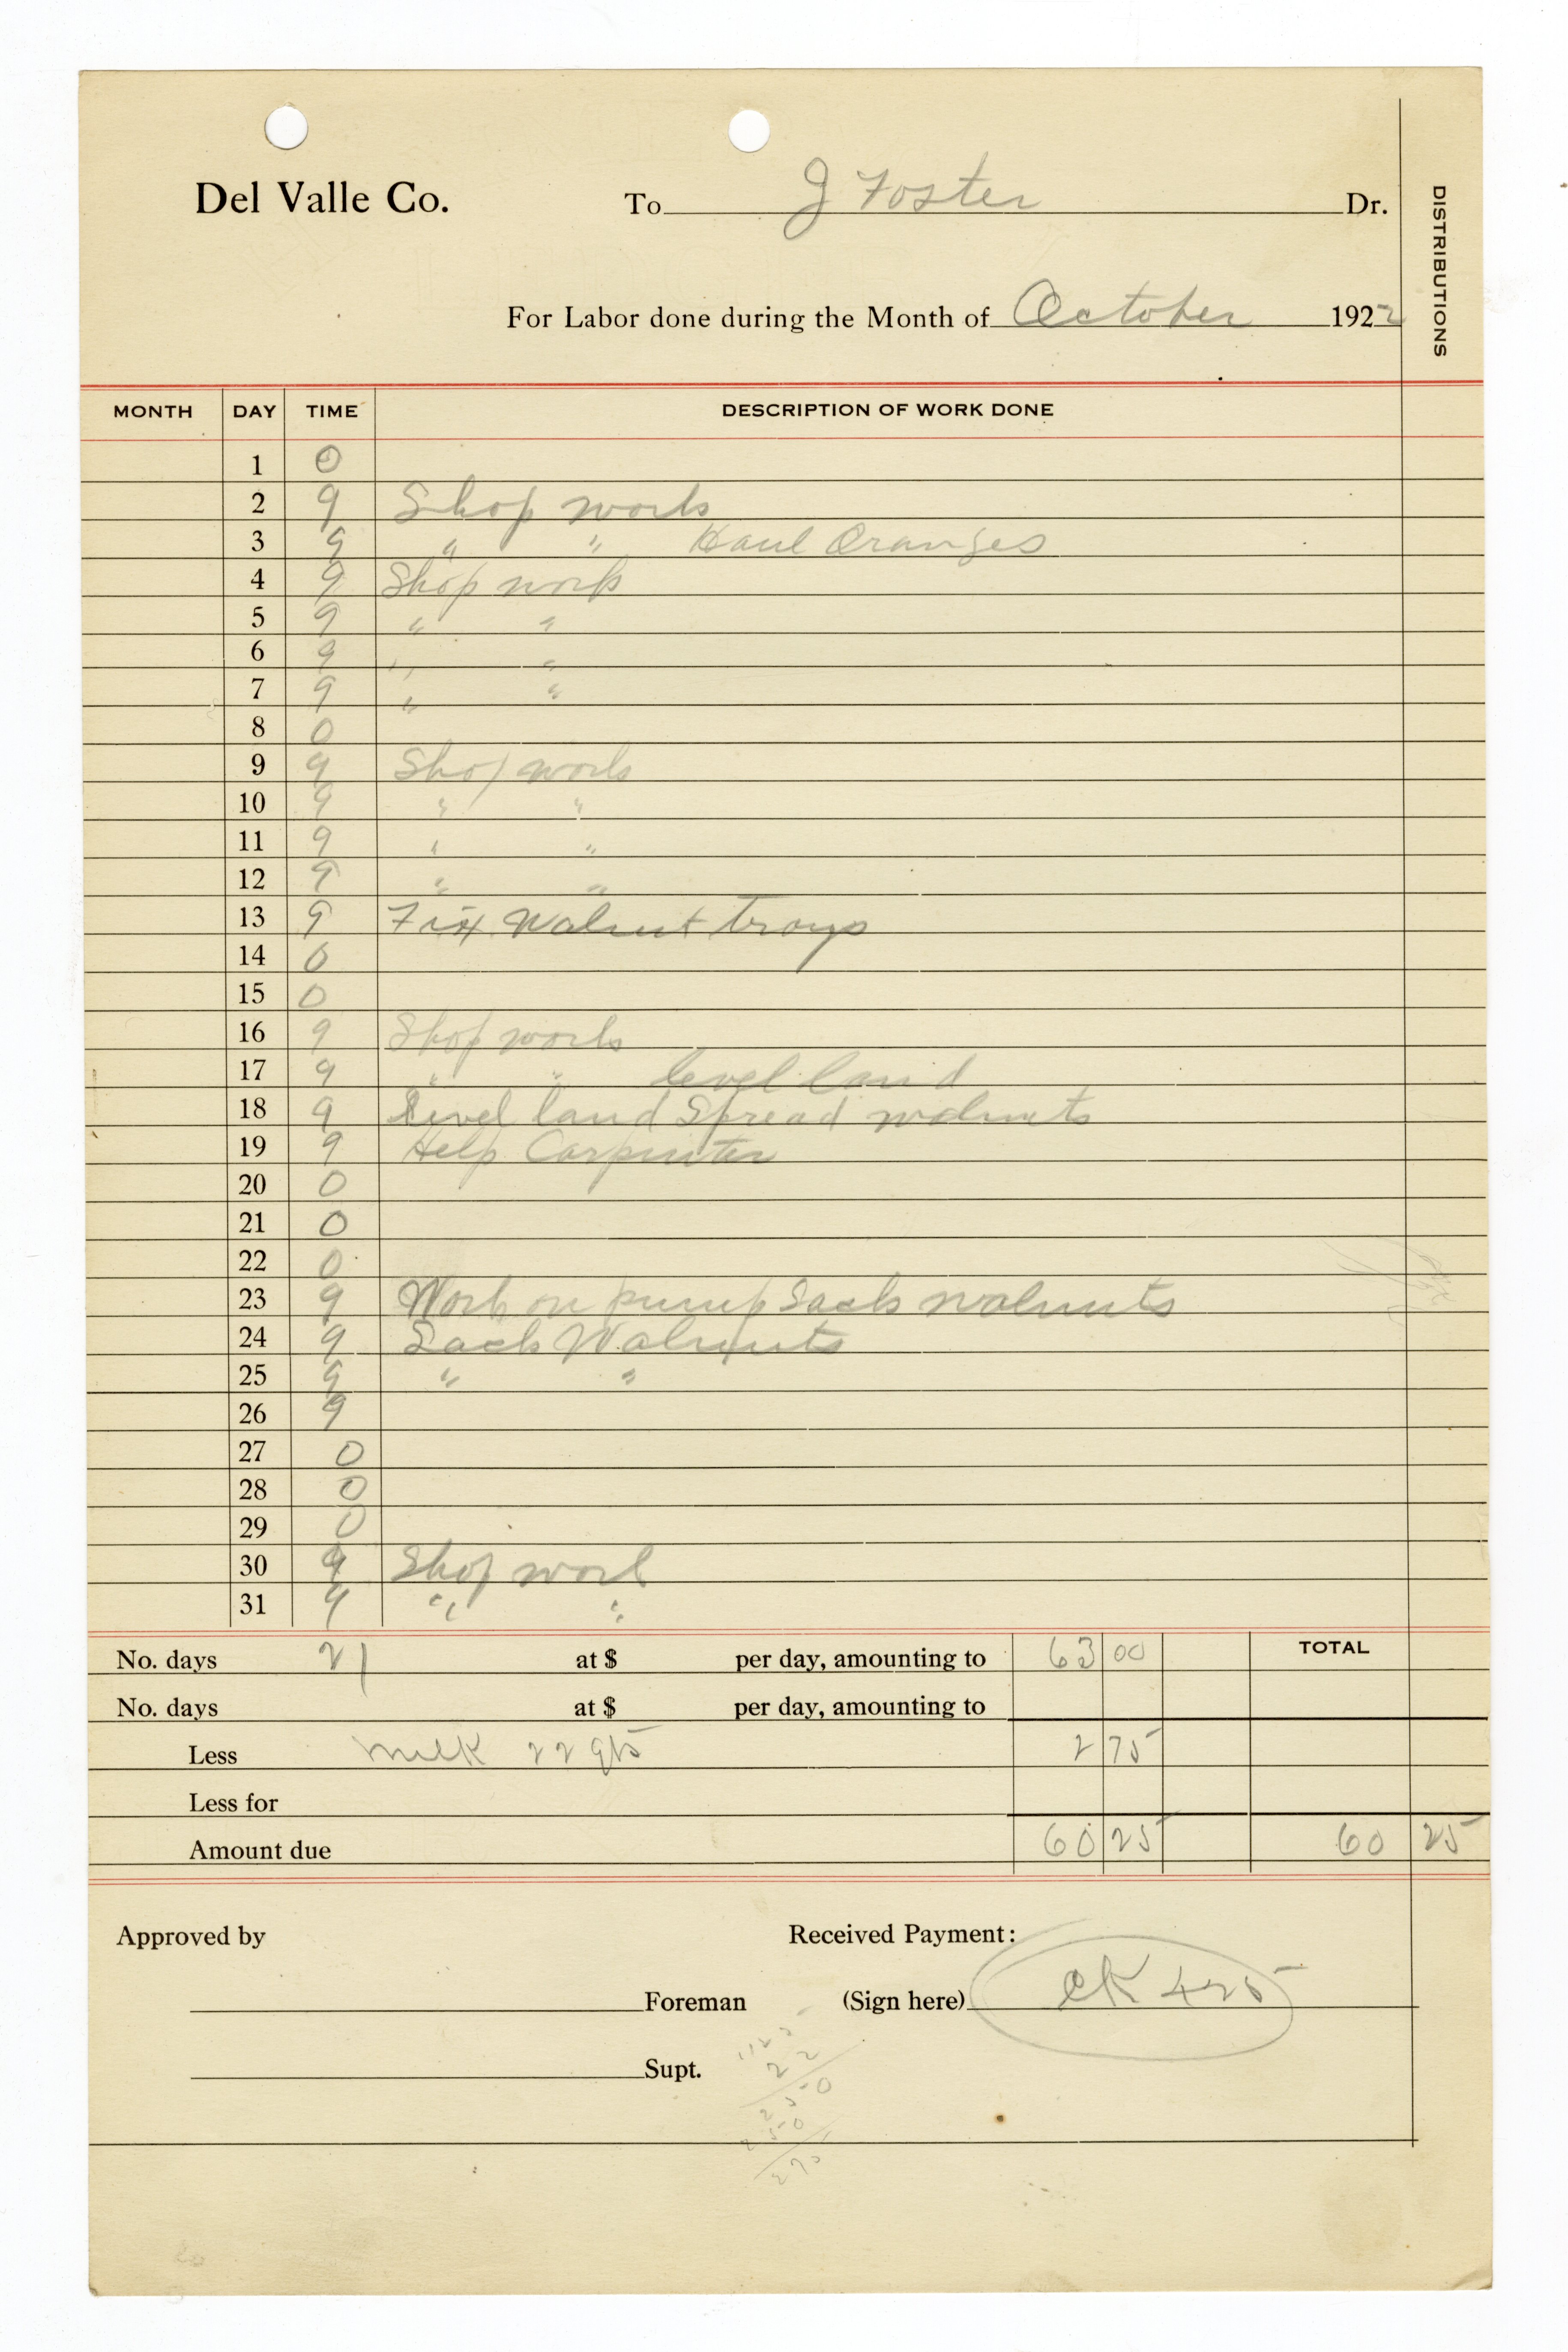 Del Valle Co. To J Foster Dr.
DISTRIBUTIONS
For Labor done during the Month of October 1922
MONTH DAY TIME DESCRIPTION OF WORK DONE
1 0
2 9 Shop work
3 9 " " Haul Oranges
4 9 Shop work
5 9 " "
6 9 " "
7 9 " "
8 0
9 9 Shop work
10 9 " "
11 9 " "
12 9 " "
13 9 Fix Walnut trays
14 0
15 0
16 9 Shop work
17 9 " " level land
18 9 Level land Spread walnuts
19 9 Help Carpenter
20 0
21 0
22 0
23 9 Work on pump Sack walnuts
24 9 Sack Walnuts
25 9 " "
26 9
27 0
28 0
29 0
30 9 Shop work
31 9 " "
No. days 21 at $ per day, amounting to 63 00 TOTAL
No. days at $ per day, amounting to
Less Milk 22 qts 2 75
Less for
Amount due 60 25 60 25
Approved by Received Payment:
Foreman (Sign here) CK 425
Supt.
125
22
250
250
275